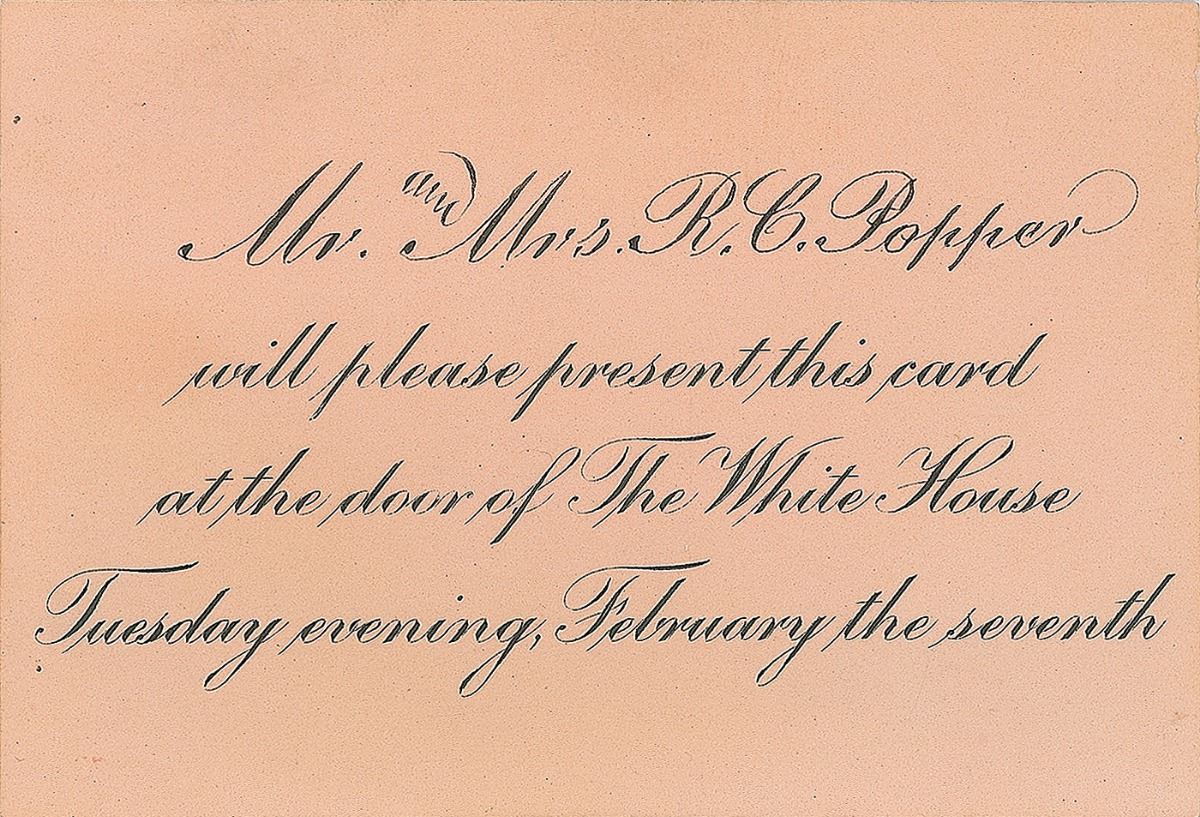 Mr. and Mrs. R. C. Popper
will please present this card
at the door of The White House
Tuesday evening, February the seventh